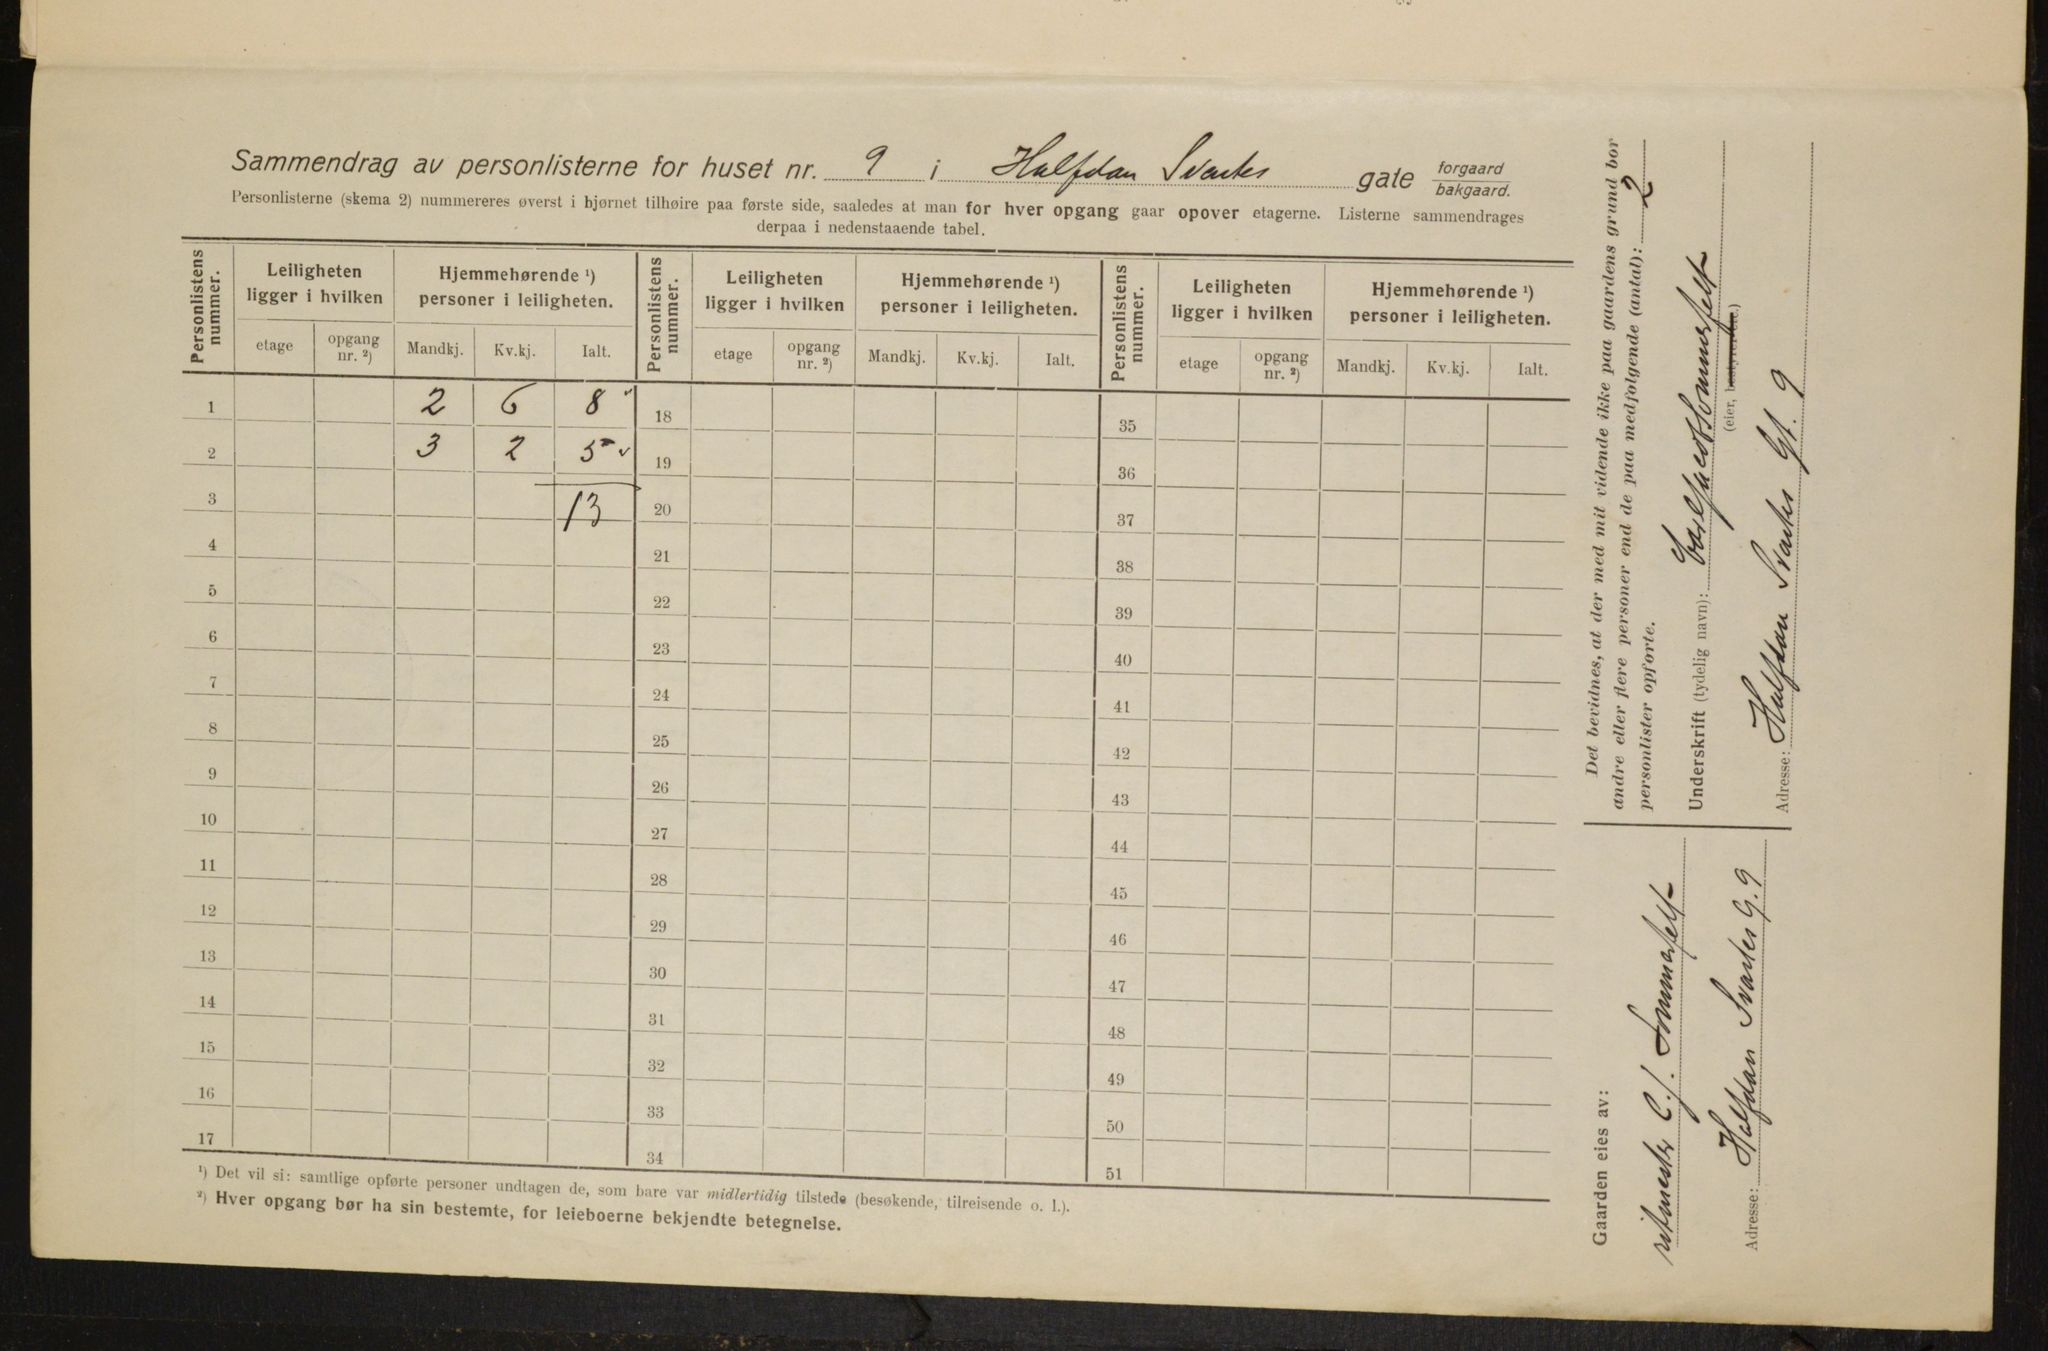 Sammendrag av personlisterne for huset nr. 9 i Halfdan Svartes gate forgaard bakgaard.
Personlisterne (skema 2) nummereres øverst i hjørnet tilhøire paa første side, saaledes at man for hver opgang gaar opover etagerne. Listerne sammendrages
derpaa i nedenstaaende tabel.
Personlistens nummer. Leiligheten ligger i hvilken Hjemmehørende ¹) personer i leiligheten. Personlistens nummer. Leiligheten ligger i hvilken Hjemmehørende ¹) personer i leiligheten. Personlistens nummer. Leiligheten ligger i hvilken Hjemmehørende ¹) personer i leiligheten.
etage opgang nr. ²) Mandkj. Kv.kj. Ialt. etage opgang nr. ²) Mandkj. Kv.kj. Ialt. etage opgang nr. ²) Mandkj. Kv.kj. Ialt.
1 2 6 8 18 35
2 3 2 5 19 36
3 13 20 37
4 21 38
5 22 39
6 23 40
7 24 41
8 25 42
9 26 43
10 27 44
11 28 45
12 29 46
13 30 47
14 31 48
15 32 49
16 33 50
17 34 51
¹) Det vil si: samtlige opførte personer undtagen de, som bare var midlertidig tilstede (besøkende, tilreisende o. l.).
²) Hver opgang bør ha sin bestemte, for leieboerne bekjendte betegnelse.
Det bevidnes, at der med mit vidende ikke paa gaardens grund bor
andre eller flere personer end de paa medfølgende (antal): 2
personlister opførte.
Underskrift (tydelig navn): Sommerfelt
(eier, bestyrer etc.)
Adresse: Halfdan Svartes Gt. 9
Gaarden eies av:
ritmester C. J. Sommerfelt
Adresse: Halfdan Svartes G. 9